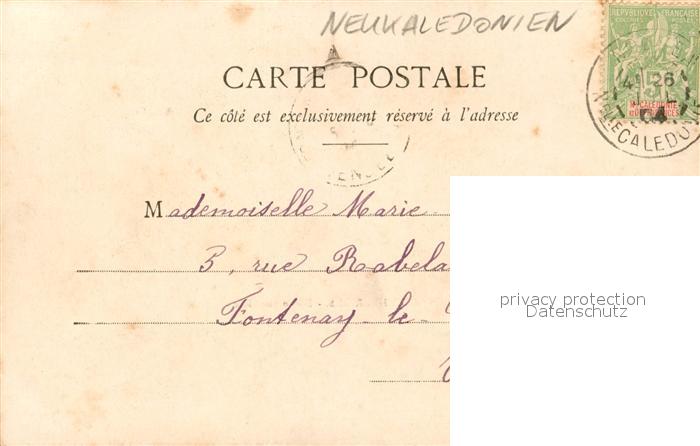 NEUKALEDONIEN
REPUBLIQUE FRANÇAISE
CARTE POSTALE
Ce côté est exclusivement réservé à l'adresse
Mademoiselle Marie
3, rue Rabela
Fontenay-le-
privacy protection
Datenschutz